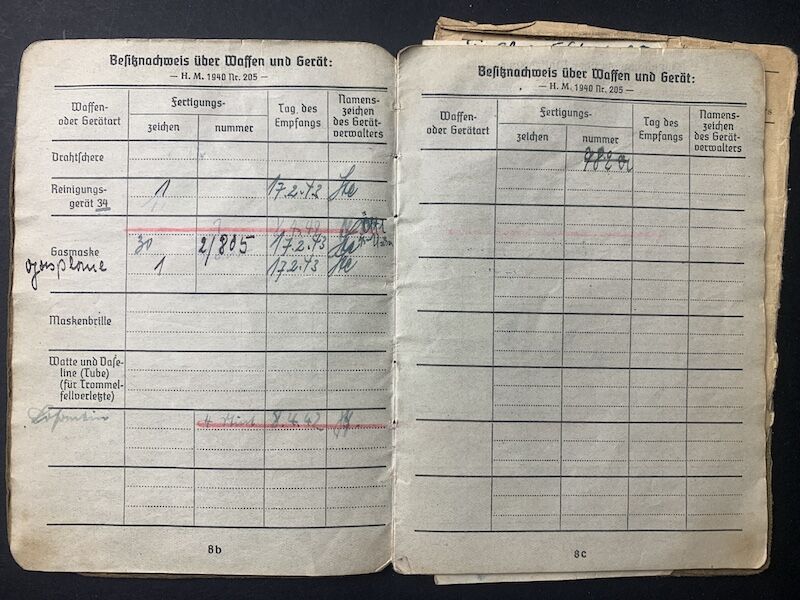 Besitznachweis über Waffen und Gerät:
— H. M. 1940 Nr. 205 —
Waffen- oder Gerätart
Fertigungs-
zeichen
nummer
Tag des Empfangs
Namens-zeichen des Gerät-verwalters
Drahtschere
Reinigungs-gerät 34
1
17.2.43
He
Gasmaske
30
2/805
17.2.43
He
Gasplane
1
17.2.43
He
Maskenbrille
Watte und Vase-line (Tube) (für Trommel-fellverletzte)
8.4.42
8b
Besitznachweis über Waffen und Gerät:
— H. M. 1940 Nr. 205 —
Waffen- oder Gerätart
Fertigungs-
zeichen
nummer
Tag des Empfangs
Namens-zeichen des Gerät-verwalters
982a
8c